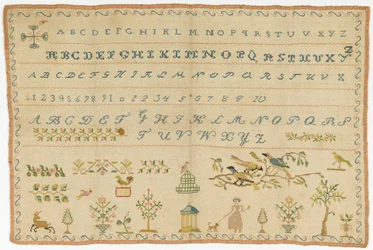 A B C D E F G H I K L M N O P Q R S T U V X Y Z
A B C D E F G H I K L M N O P Q R S T U V X Y Z
A B C D E F G H I K L M N O P Q R S T U V X
1 2 3 4 5 6 7 8 9 1 0 1 2 3 4 5
A B C D E F G H I K L M N O P Q R S
T U V W X Y Z